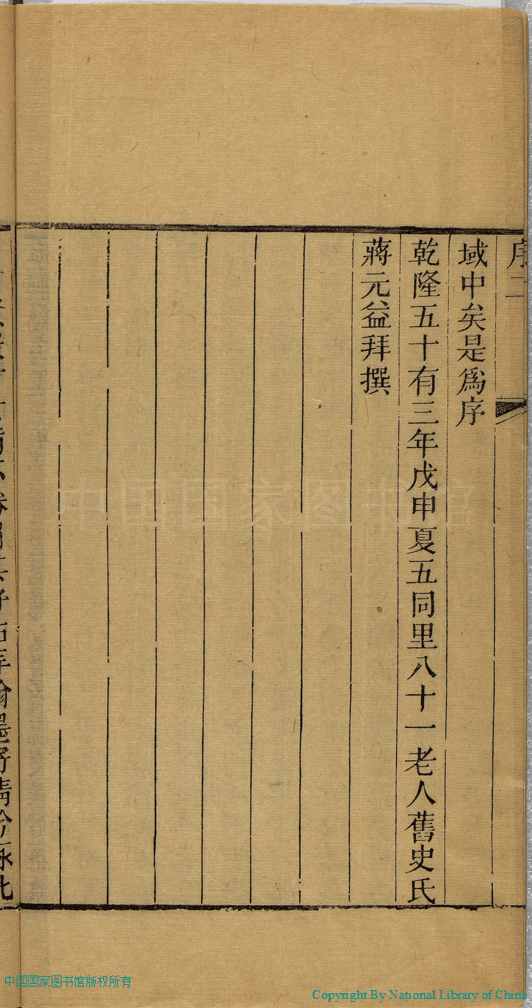 序二
域中矣是爲序
乾隆五十有三年戊申夏五同里八十一老人舊史氏
蔣元益拜撰
中国国家图书馆
中国国家图书馆版权所有
Copyright By National Library of China